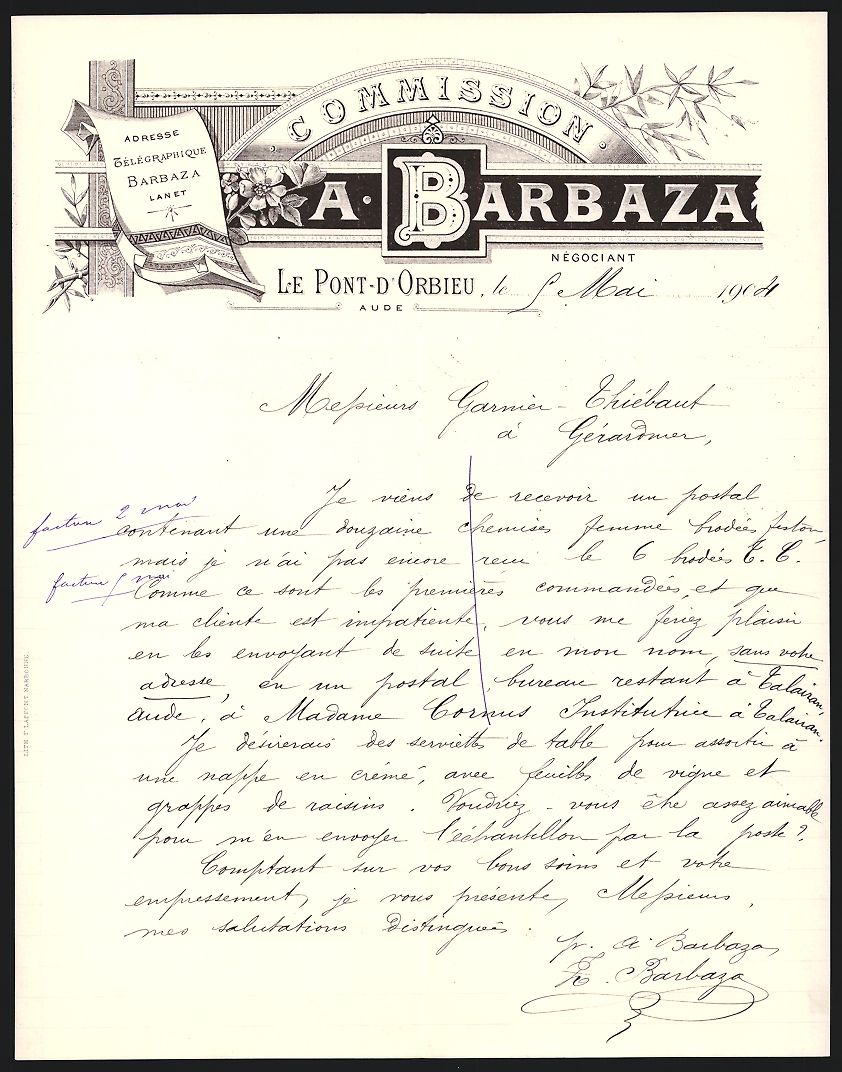 COMMISSION
ADRESSE
TÉLÉGRAPHIQUE
BARBAZA
LANET
A. BARBAZA
NÉGOCIANT
LE PONT-D'ORBIEU, le 5 Mai 1904
AUDE
Messieurs Garnier-Thiébaut
à Gérardmer,
Je viens de recevoir un postal
facture 2 mai
contenant une douzaine chemises femme brodées feston,
mais je n'ai pas encore reçu le 6 brodées T. C.
facture 5 mai
Comme ce sont les premières commandées, et que
ma cliente est impatiente, vous me feriez plaisir
en les envoyant de suite en mon nom, sans votre
adresse, en un postal, bureau restant à Talairan,
Aude, à Madame Cornus Institutrice à Talairan.
Je désirerais des serviettes de table pour assortir à
une nappe en crémé, avec feuilles de vigne et
grappes de raisins. Voudriez-vous être assez aimable
pour m'en envoyer l'échantillon par la poste?
Comptant sur vos bons soins et votre
empressement, je vous présente, Messieurs,
mes salutations distinguées.
pr. A. Barbaza
Barbaza
LITH. F. LAFFONT. NARBONNE.